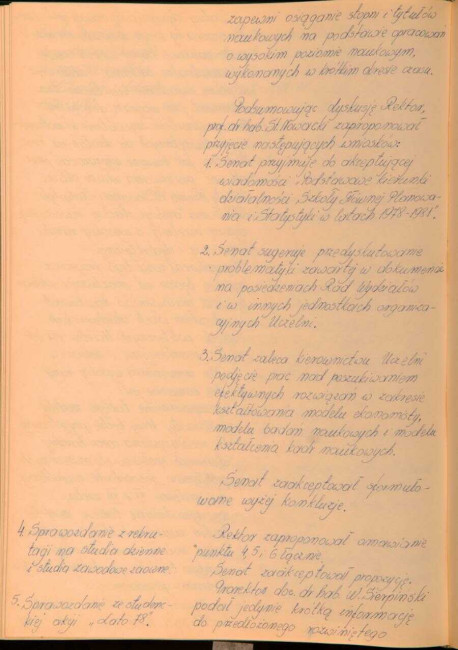 zapewni osiąganie stopni i tytułów
naukowych na podstawie opracowań
o wysokim poziomie naukowym,
wykonanych w krótkim okresie czasu.
Podsumowując dyskusję Rektor,
prof. dr hab. St. Nowacki zaproponował
przyjęcie następujących wniosków:
1. Senat przyjmuje do akceptującej
wiadomości "Podstawowe kierunki
działalności Szkoły Głównej Planowa-
nia i Statystyki w latach 1978-1981".
2. Senat sugeruje przedyskutowanie
problematyki zawartej w dokumencie
na posiedzeniach Rad Wydziałów
i w innych jednostkach organiza-
cyjnych Uczelni.
3. Senat zaleca kierownictwu Uczelni
podjęcie prac nad poszukiwaniem
efektywnych rozwiązań w zakresie
kształtowania modelu ekonomisty,
modelu badań naukowych i modelu
kształcenia kadr naukowych.
Senat zaakceptował sformuło-
wane wyżej konkluzje.
4. Sprawozdanie z rekru-
tacji na studia dzienne
i studia zawodowe zaoczne.
Rektor zaproponował omawianie
punktu 4, 5, 6 łącznie.
Senat zaakceptował propozycję.
Prorektor doc. dr hab. W. Sierpiński
podał jedynie krótką informację
do przedłożonego rozwiniętego
5. Sprawozdanie ze studenc-
kiej akcji "Lato 78".